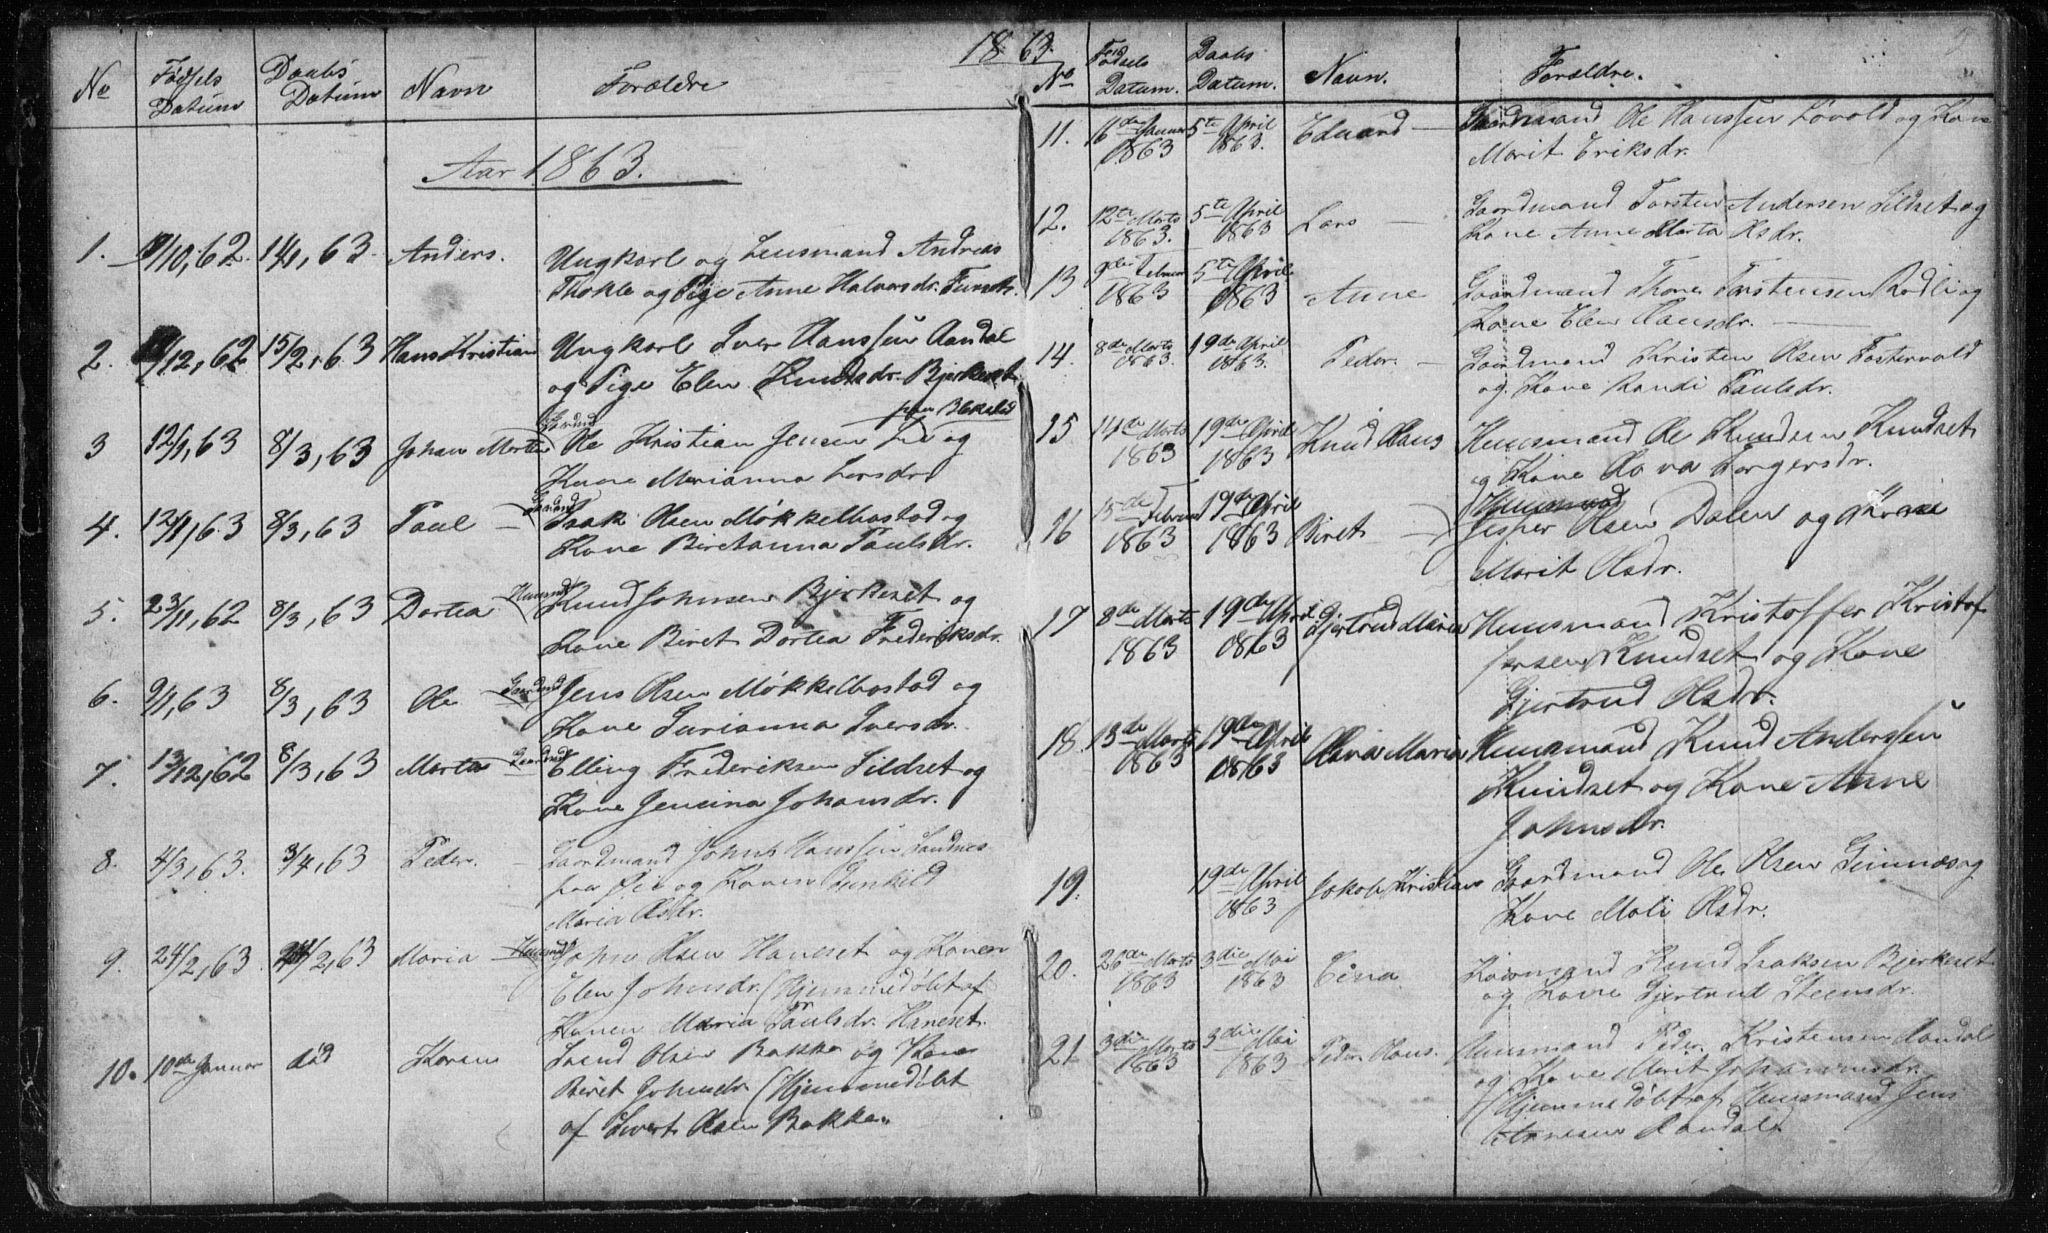 No Fødsels Datum Daabs Datum Navn Forældre
Aar 1863.
1. /10, 62. 14/1, 63. Anders. Ungkarl og Lensmand Andreas
Thokle og Pige Anne Halvorsdr. Furset.
2. /12, 62 15/2, 63 Hans Kristian Ungkarl Iver Hanssen Aandal
og Pige Elen Knudsdr. Bjerkeset
3 12/1, 63 8/3, 63 Johan Morten Gdmd Ole Kristian Jensen Lie og
Kone Marianna Larsdr.
4. 12/1, 63 8/3, 63 Paul — Gdmd Isak Olsen Møkkelbostad og
Kone Beretanna Paulsdr.
5. 23/11, 62 8/3, 63 Dortea Huusmd Knud Johnsen Bjerkeset og
Kone Beret Dortea Frederiksdr.
6. 9/1, 63 8/3, 63 Ole Gaardmd Jens Olsen Møkkelbostad og
Kone Gurianna Iversdr.
7. 13/12, 62 8/3, 63 Marta Gaardmd Elling Frederiksen Sildset og
Kone Jensina Johansdr.
8. 4/3, 63. 3/4, 63 Peder. — Gaardmand John Hanssen Sandnes
paa Øie og Konen Gunhild
Maria Olsdr.
9. 24/2, 63. 24/2, 63 Maria Huusmd John Olsen Haneset og Konen
Elen Johnsdr. (Hjemmedøbt af
Konen Maria Paulsdr. Haneset.
10. 10de Januar død Karen Svend Olsen Bakken og Kone
Beret Johnsdr. (Hjemmedøbt
af Sivert Olsen Bakken.
1863.
No Fødsels Datum. Daabs Datum. Navn. Forældre.
11. 16de Januar 1863 5te April 1863. Edvard — Gaardmand Ole Hanssen Løvold og Kone
Marit Eriksdr.
12. 12te Marts 1863. 5te April 1863 Lars — Gaardmand Torsten Andersen Sildset og
Kone Anne Marta Olsdr.
13 9de Februar 1863 5te April 1863 Anne Gaardmand Thore Torstensen Rødli og
Kone Elen Hansdr. —
14. 8de Marts 1863. 19de April 1863. Peder. — Gaardmand Kristen Olsen Fostervold
og Kone Randi Paulsdr.
15 14de Marts 1863 19de April 1863 Knud Hans Huusmand Ole Knudsen Knudset
og Kone Olava Torgersdr.
16 15de Februar 1863 19de April 1863 Beret — Huusmand
Jesper Olsen Dalen og Kone
Marit Olsdr.
17 8de Marts 1863 19de April 1863 Gjertrud Maria Huusmand Kristoffer Kristof
fersen Knudset og Kone
Gjertrud Olsdr.
18. 13de Marts 1863 19de April 1863 Olava Maria Huusmand Knud Anderssen
Knudset og Kone Anne
Johnsdr.
19. 19de April 1863 Jakob Kristian Gaardmand Ole Olsen Gimnes og
Kone Mali Olsdr.
20. 26de Marts 1863 3die Mai 1863 Eina Gaardmand Knud Isaksen Bjerkeset
og Kone Gjertrud Steensdr.
21 3die Marts 1863 3die Mai 1863 Peder Hans. Huusmand Peder Kristensen Aandal
og Kone Marit Johannesdr.
(Hjemmedøbt af Huusmand Jens
Arnesen Aandal